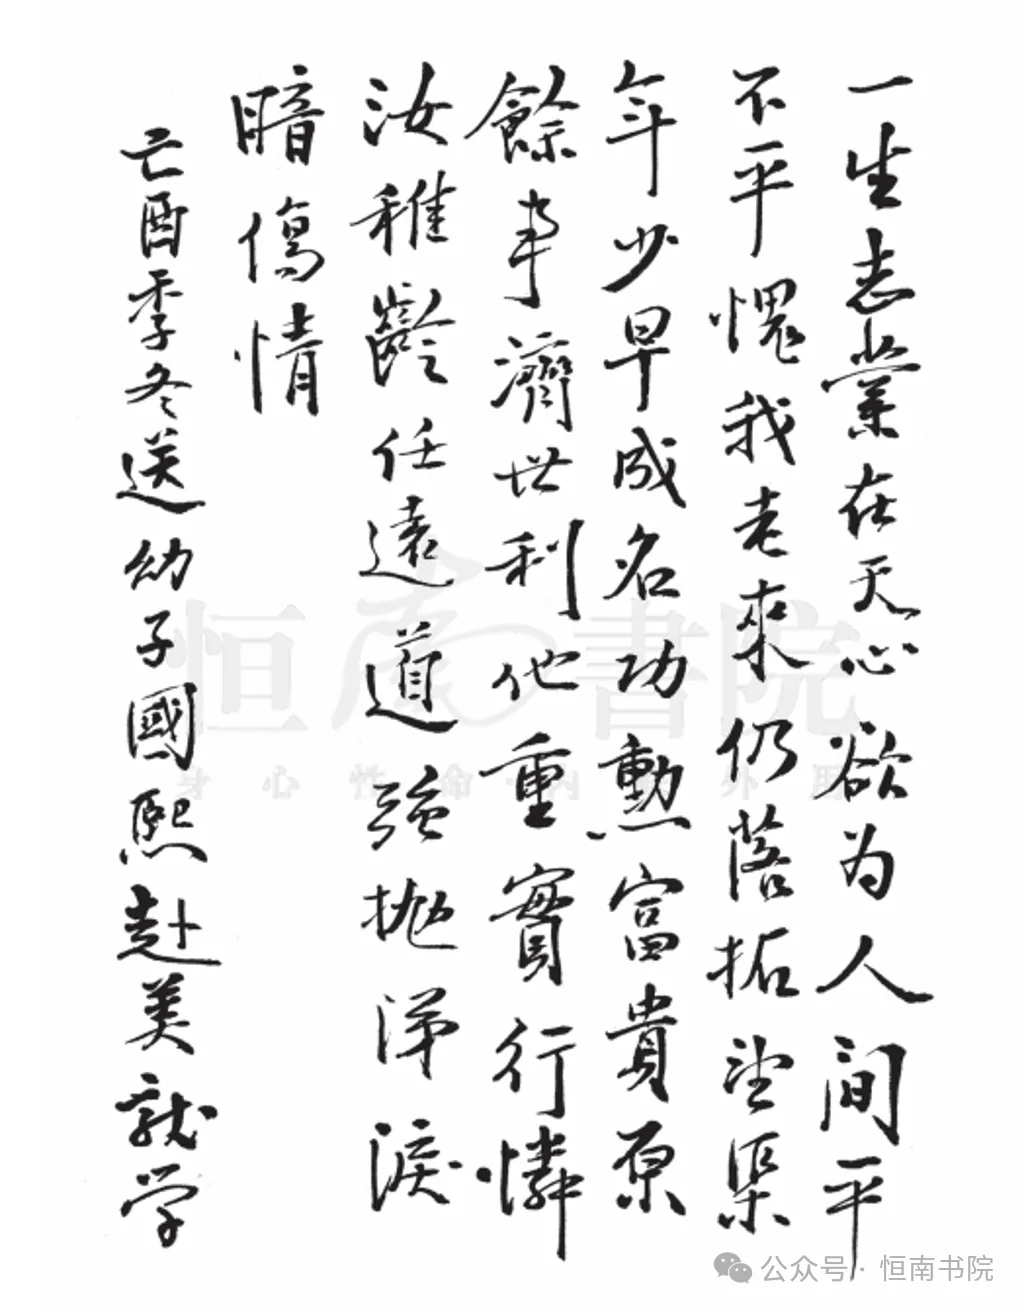 一生志業在天心欲为人间平
不平愧我老來仍落拓望渠
年少早成名功勳富貴原
餘事濟世利他重實行憐
汝稚齡任遠道強拋涕淚
暗傷情
亡酉季冬送幼子國熙赴美就学
恒南書院
身心性命·内外用
公众号·恒南书院